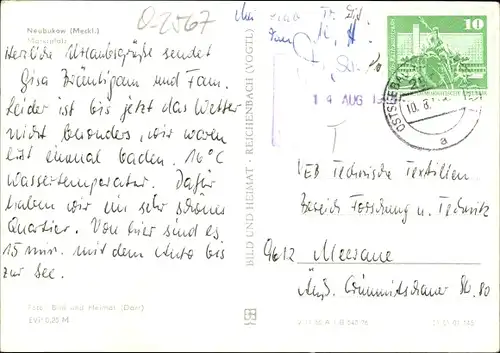 O-2567
Neubukow (Meckl.)
Herzliche Urlaubsgrüße sendet
Gisa Bräutigam und Fam.
Leider ist bis jetzt das Wetter
nicht besonders, wir waren
erst einmal baden. 16°C
Wassertemperatur. Dafür
haben wir ein sehr schönes
Quartier. Von hier sind es
15 min. mit dem Auto bis
zur See.
Foto: Bild und Heimat (Darr)
EVP 0,20 M
BILD UND HEIMAT · REICHENBACH (VOGTL)
14 AUG
10
OSTSEEBAD
10. 8.
a
VEB Technische Textilien
Bereich Forschung u. Technik
9612 Meerane
Äuß. Crimmitschauer Str. 80